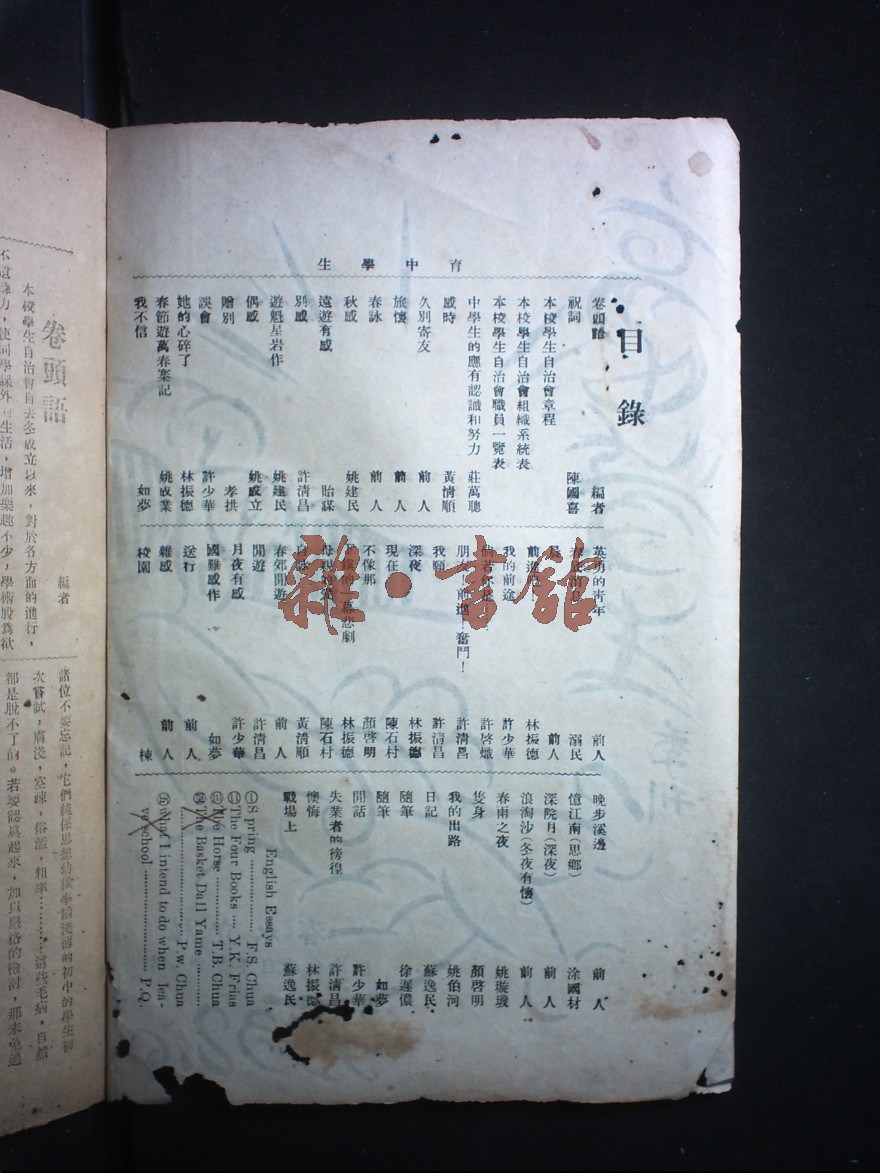 育中學生
目錄
卷頭語 編者
祝詞 陳國喜
本校學生自治會章程
本校學生自治會組織系統表
本校學生自治會職員一覽表
中學生的應有認識和努力 莊萬聰
感時 黃清順
久別寄友 前人
旅懷 前人
春詠 前人
秋感 姚建民
遠遊有感 貽謀
別感 許清昌
遊魁星岩作 姚建民
偶感 姚成立
贈別 孝拱
誤會 許少華
她的心碎了 林振德
春節遊萬春寨記 姚成業
我不信 如夢
英勇的青年 前人
溺民
前人
前進 林振德
我的前途 許少華
許啓熾
朋友 前進！奮鬥！ 許清昌
我願 許清昌
深夜 林振德
現在 陳石村
不像那 顏啓明
一幕悲劇 林振德
陳石村
黃清順
春郊閒遊 前人
閒遊 許清昌
月夜有感 許少華
國難感作 如夢
送行 前人
雜感 前人
校園 棟
晚步溪邊 前人
憶江南(思鄉) 涂國材
深院月(深夜) 前人
浪淘沙(冬夜有懷) 前人
春雨之夜 姚璇璣
隻身 顏啓明
我的出路 姚伯河
日記 蘇逸民
隨筆 徐遲儂
隨筆 如夢
閒話 許少華
失業者的徬徨 許清昌
懊悔 林振德
戰場上 蘇逸民
English Essays
㊀Spring .................. F.S. Chua
㊁The Four Books .... Y.K. Frias
㊂The Horse ............... T.B. Chua
㊃The Basket Dall Yame
........................... P.w. Chua
㊄What I intend to do when lea-
ve school ..................... P.Q.
卷頭語
編者
本校學生自治會自去冬成立以來，對於各方面的進行，
不遺餘力，使同學課外的生活，增加樂趣不少，學術股為欲
次嘗試，膚淺，空疎，俗濫，粗率…………這些毛病，自然
都是脫不了的。若要認真起來，加以嚴格的檢討，那末免過
雜·書館